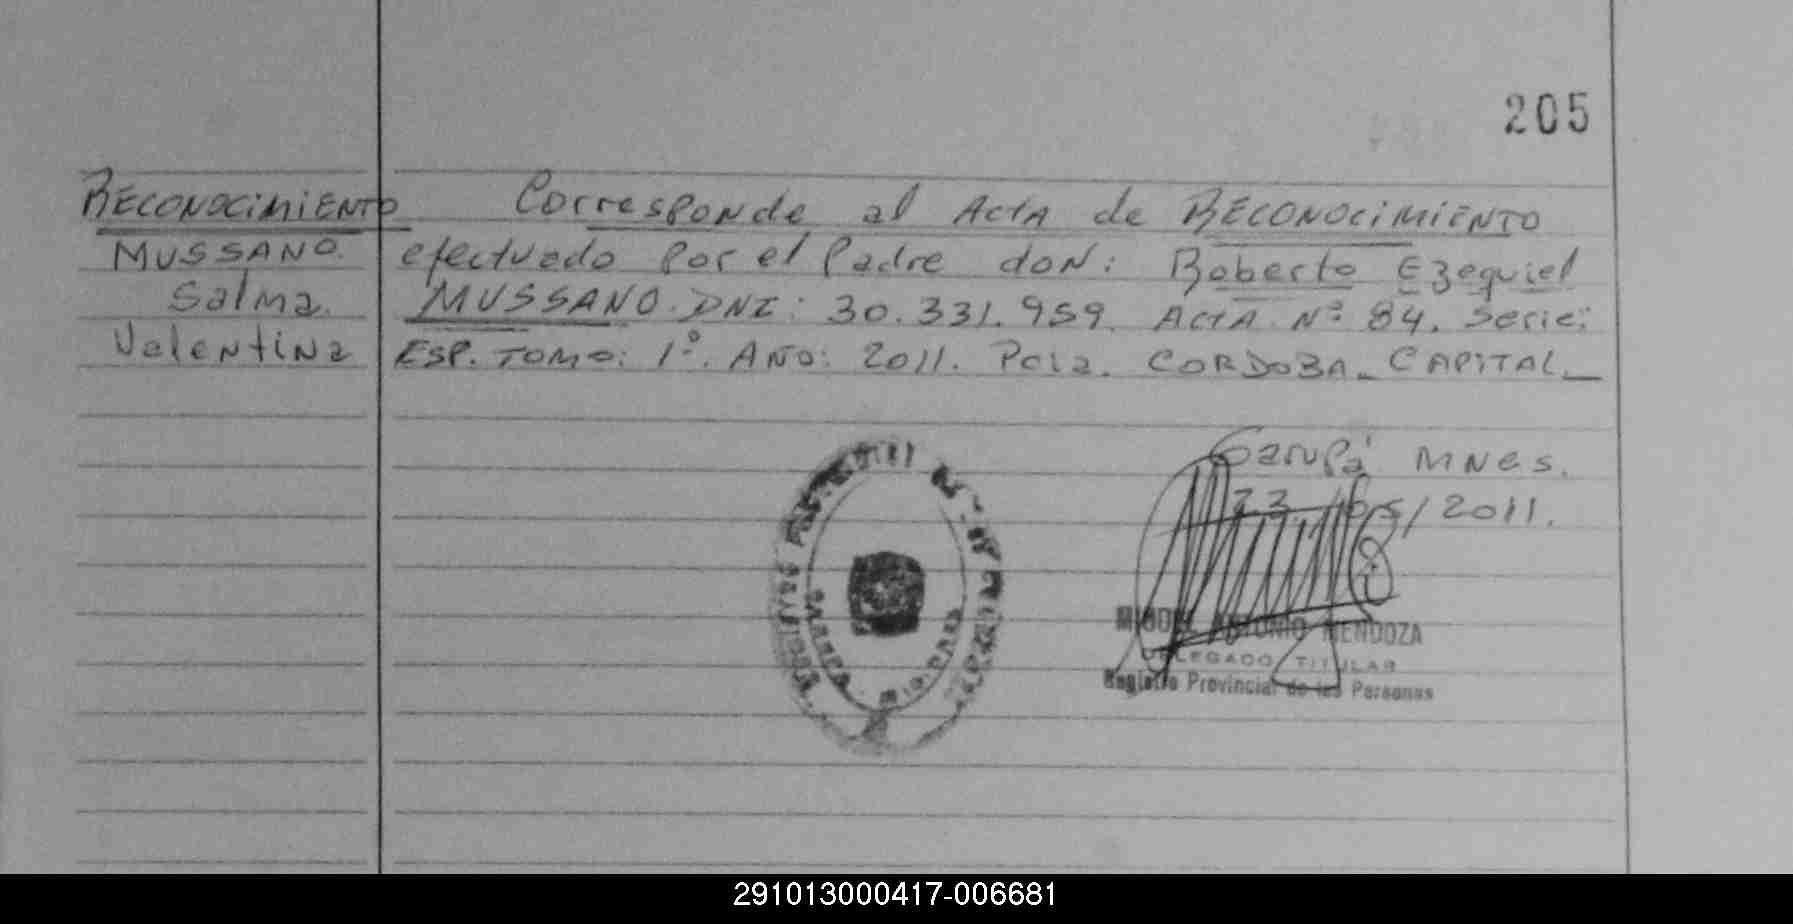 205
RECONOCIMIENTO Corresponde al Acta de RECONOCIMIENTO
MUSSANO. efectuado por el Padre don: Roberto Ezequiel
Salma. MUSSANO. DNI: 30.331.959. Acta Nº 84. Serie:
Valentina ESP. TOMO: 1º. AÑO: 2011. Pcia. CORDOBA - CAPITAL -
Garupá Mnes.
23/05/2011.
MIGUEL ANTONIO MENDOZA
DELEGADO TITULAR
Registro Provincial de las Personas
291013000417-006681